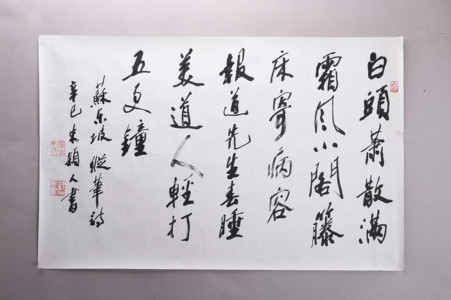 白頭蕭散滿
霜風小閣籐
床寄病容
報道先生春睡
美道人輕打
五更鐘
蘇東坡縱筆詩
辛巳朱穎人書